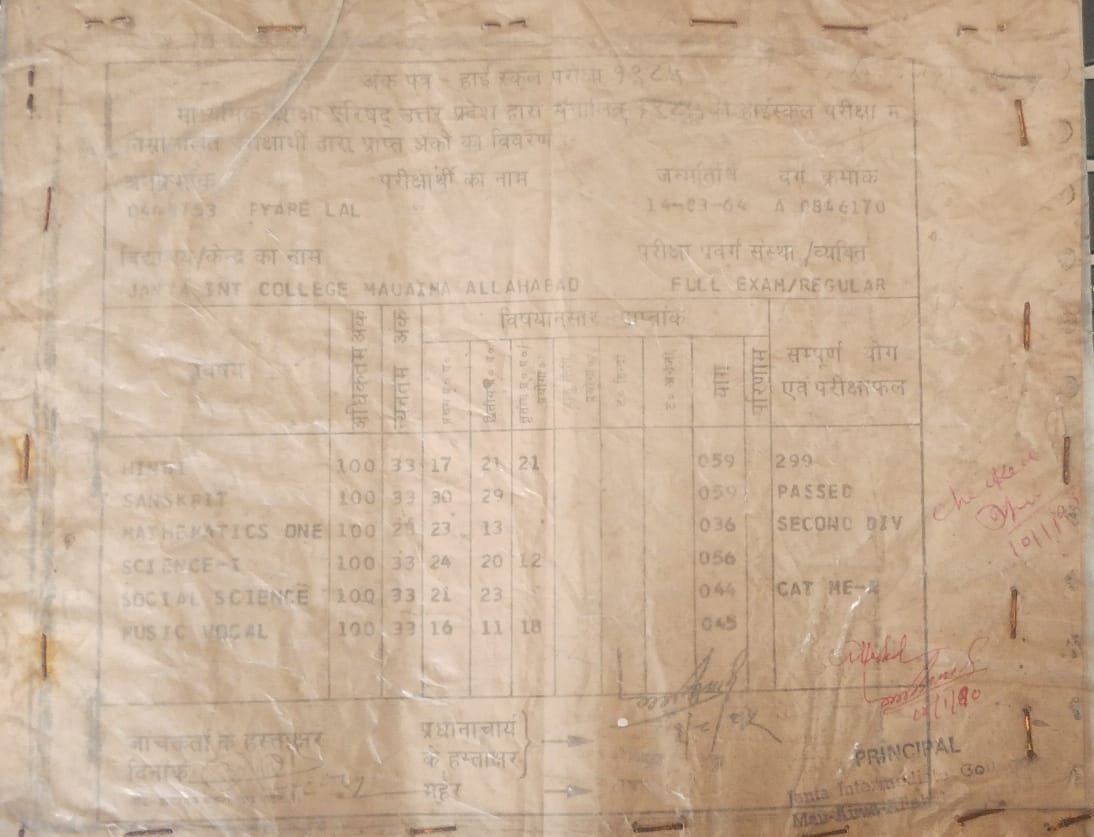 अंक पत्र - हाई स्कूल परीक्षा १९८५
माध्यमिक शिक्षा परिषद् उत्तर प्रदेश द्वारा संचालित १९८५ की हाईस्कूल परीक्षा में
निम्नलिखित परीक्षार्थी द्वारा प्राप्त अंकों का विवरण
अनुक्रमांक परीक्षार्थी का नाम जन्मतिथि वर्ग क्रमांक
PYARE LAL 14-03-64 A 0846170
विद्यालय/केन्द्र का नाम परीक्षा प्रवर्ग संस्था/व्यक्ति
JANTA INT COLLEGE MAUAIMA ALLAHABAD FULL EXAM/REGULAR
विषय अधिकतम अंक न्यूनतम अंक विषयानुसार प्राप्तांक योग परिणाम सम्पूर्ण योग
एवं परीक्षाफल
HINDI 100 33 17 21 21 059 299
SANSKRIT 100 33 30 29 059 PASSED
MATHEMATICS ONE 100 23 13 036 SECOND DIV
SCIENCE-I 100 33 24 20 12 056
SOCIAL SCIENCE 100 33 21 23 044 CAT ME-
MUSIC VOCAL 100 33 16 11 18 045
जांचकर्ता के हस्ताक्षर प्रधानाचार्य
के हस्ताक्षर
दिनांक मुहर
PRINCIPAL
Janta Intermediate Co
Checked
10/1/90